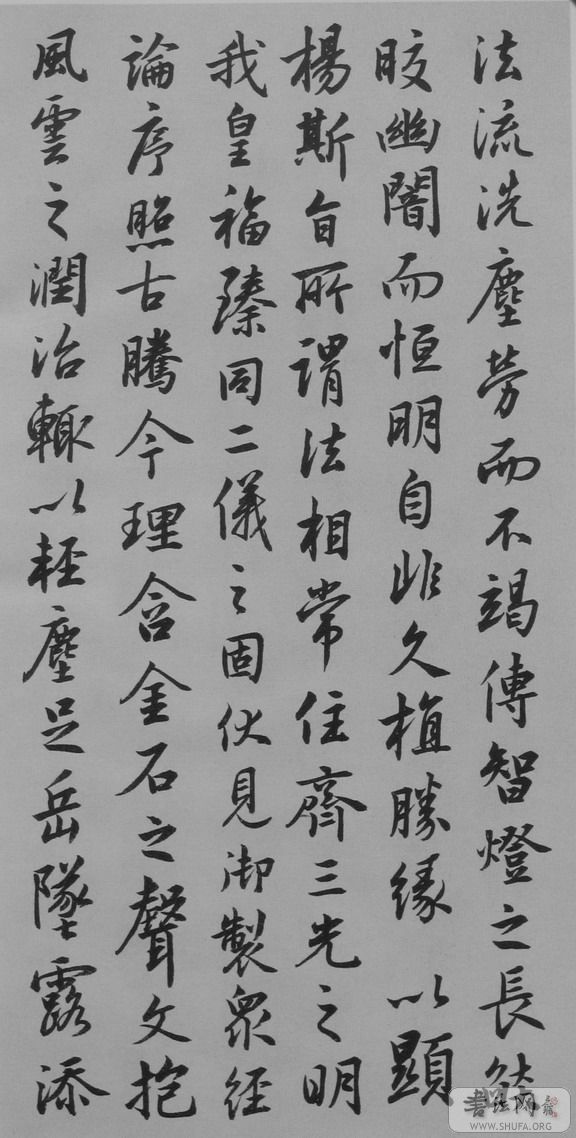 法流洗塵勞而不竭傳智燈之長
皎幽闇而恒明自非久植勝緣 以顯
楊斯旨所謂法相常住齊三光之明
我皇福臻同二儀之固伏見御製衆經
論序照古騰今理含金石之聲文抱
風雲之潤治輒以輕塵足岳墜露添
書法网
WWW.SHUFA.ORG